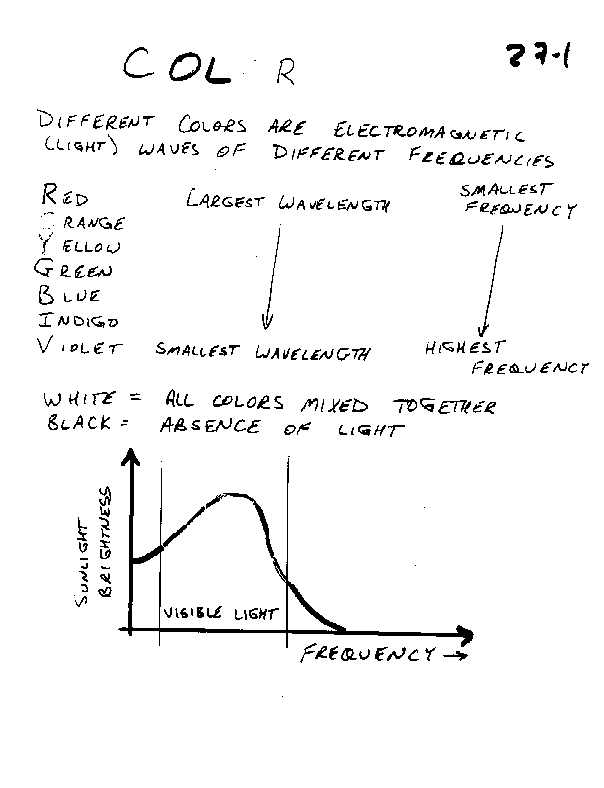 COL R
27-1
DIFFERENT COLORS ARE ELECTROMAGNETIC
(LIGHT) WAVES OF DIFFERENT FREQUENCIES
RED
ORANGE
YELLOW
GREEN
BLUE
INDIGO
VIOLET
LARGEST WAVELENGTH
SMALLEST WAVELENGTH
SMALLEST
FREQUENCY
HIGHEST
FREQUENCY
WHITE = ALL COLORS MIXED TOGETHER
BLACK = ABSENCE OF LIGHT
SUNLIGHT
BRIGHTNESS
VISIBLE LIGHT
FREQUENCY →